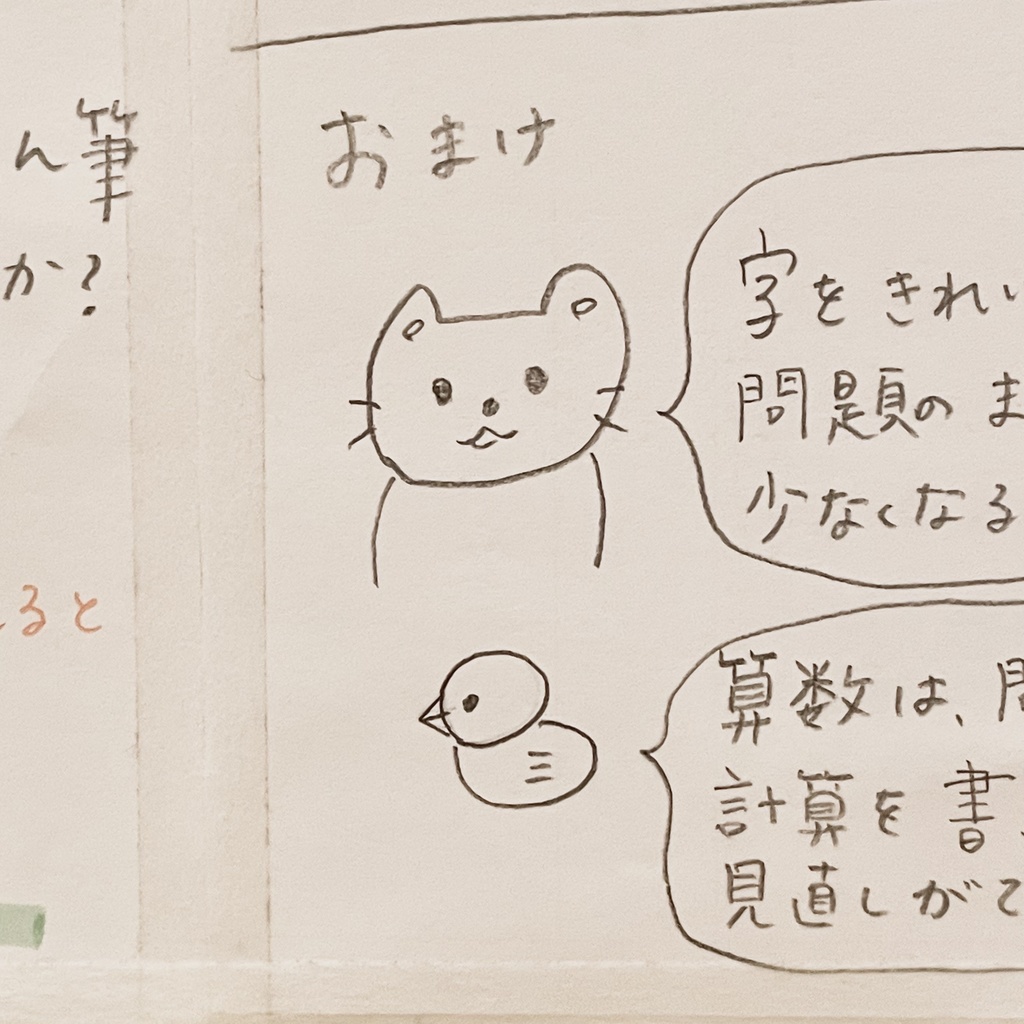 ん筆
か?
ると
おまけ
字をきれい
問題のま
少なくなる
算数は、問
計算を書
見直しがで